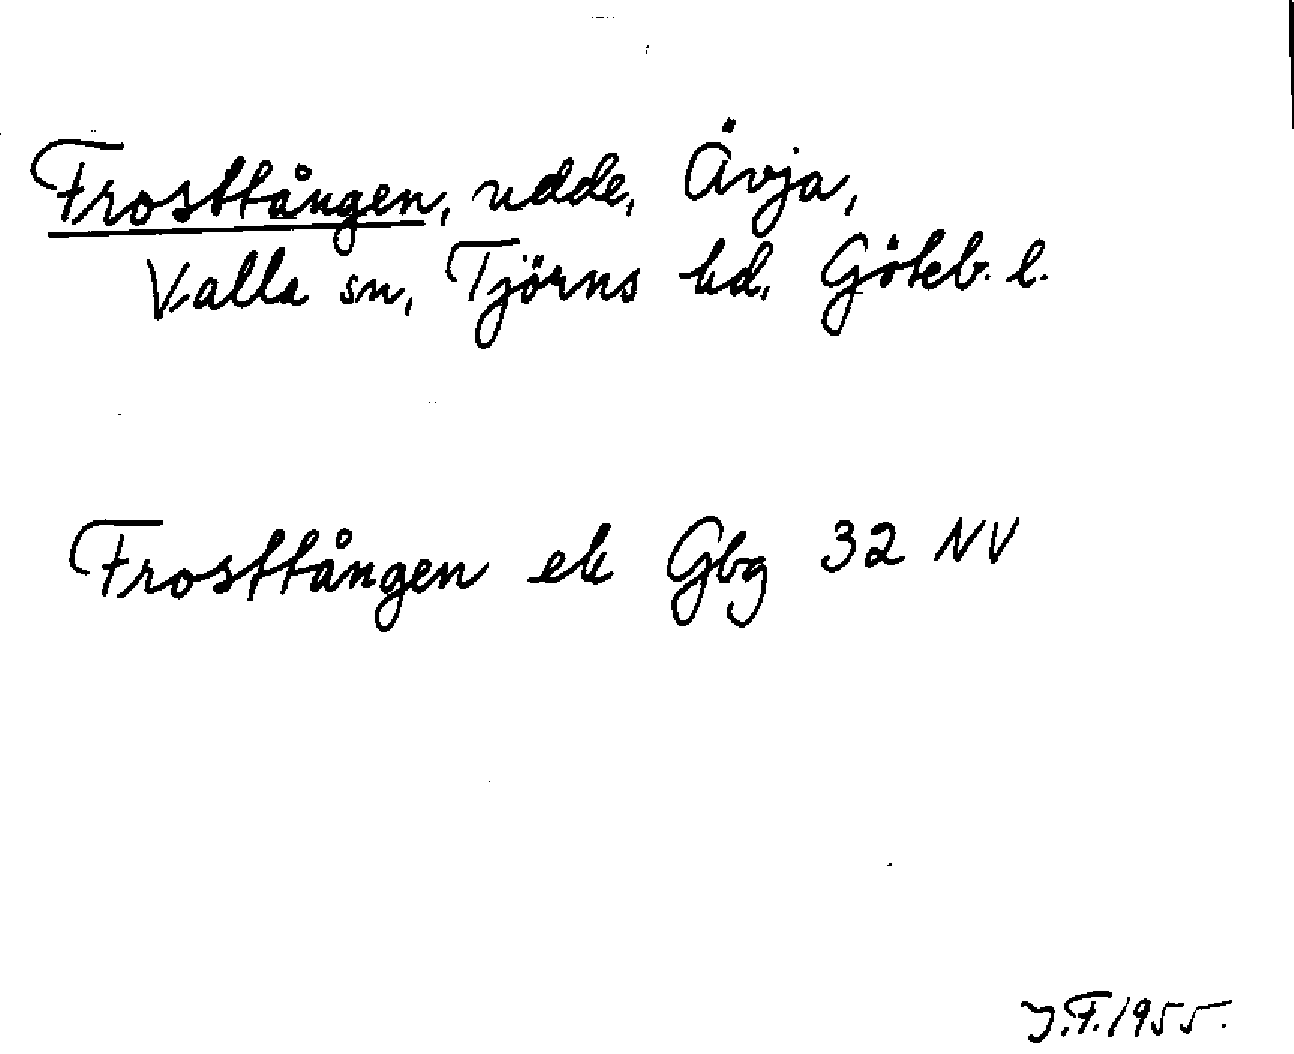 Frosttången, udde, Ävja,
Valla sn, Tjörns hd, Göteb. l.
Frosttången ek Gbg 32 NV
J.F. 1955.